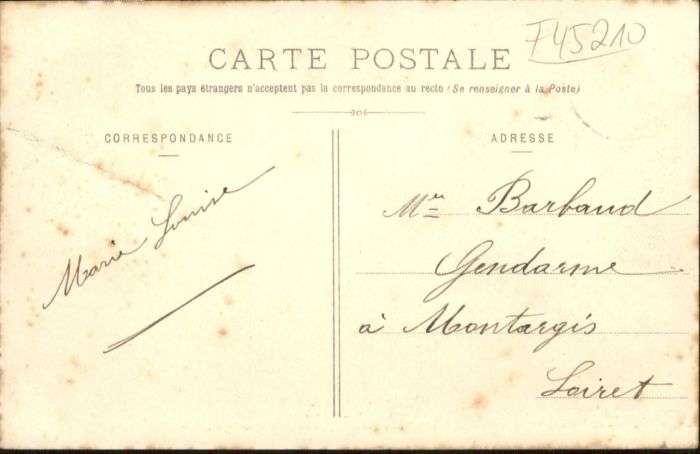 F45210
CARTE POSTALE
Tous les pays étrangers n'acceptent pas la correspondance au recto (Se renseigner à la Poste)
CORRESPONDANCE
ADRESSE
Marie Louise
Barbaud
Gendarme
à Montargis
Loiret